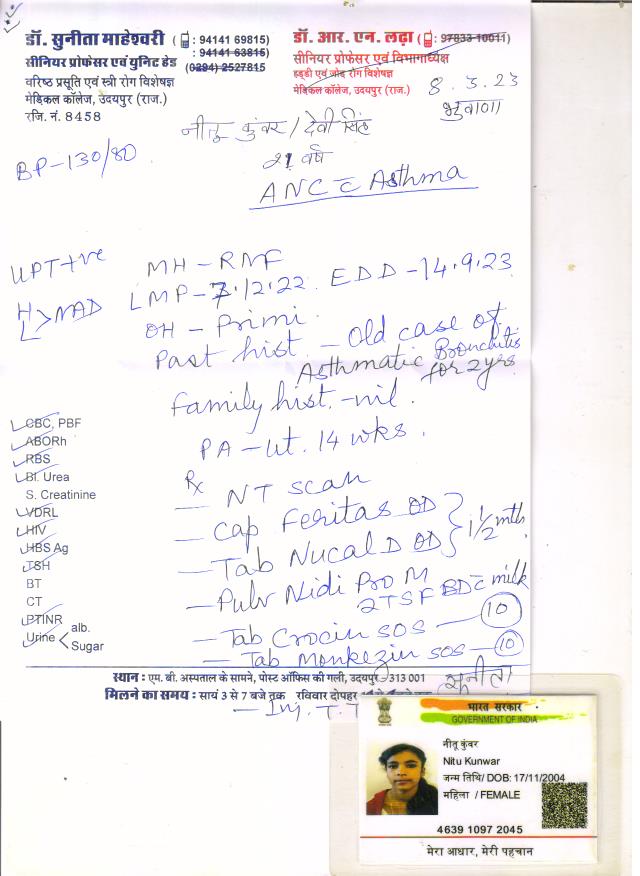 डॉ. सुनीता माहेश्वरी ( : 94141 69815)
: 94141 63815)
सीनियर प्रोफेसर एवं युनिट हेड (0294) 2527815
वरिष्ठ प्रसूति एवं स्त्री रोग विशेषज्ञ
मेडिकल कॉलेज, उदयपुर (राज.)
रजि. नं. 8458
डॉ. आर. एन. लढ़ा ( : 97833 10011)
सीनियर प्रोफेसर एवं विभागाध्यक्ष
हड्डी एवं जोड़ रोग विशेषज्ञ
मेडिकल कॉलेज, उदयपुर (राज.)
8.3.23
भुवाणा
नीतू कुंवर / देवी सिंह
21 वर्ष
BP-130/80
ANC c Asthma
UPT+ve
MH - RMF
LMP - 7.12.22. EDD - 14.9.23
H
L > NAD
OH - Primi.
Past hist. - Old case of
Asthmatic Bronchitis
for 2 yrs
Family hist. - nil.
PA - Ut. 14 wks.
CBC, PBF
ABORh
RBS
Bl. Urea
S. Creatinine
VDRL
HIV
HBS Ag
TSH
BT
CT
PTINR
Urine < alb.
Sugar
Rx
- NT scan
- Cap Feritas OD
- Tab Nucal D OD } 1 1/2 mths
- Pulv Nidi Pro M
2TSF BD c milk
- Tab Crocin SOS - 10
- Tab Monkezin SOS - 10
स्थान : एम. बी. अस्पताल के सामने, पोस्ट ऑफिस की गली, उदयपुर - 313 001
मिलने का समय : सायं 3 से 7 बजे तक रविवार दोपहर
सुनीता
- Inj. T. T
भारत सरकार
GOVERNMENT OF INDIA
नीतू कुंवर
Nitu Kunwar
जन्म तिथि/ DOB: 17/11/2004
महिला / FEMALE
4639 1097 2045
मेरा आधार, मेरी पहचान